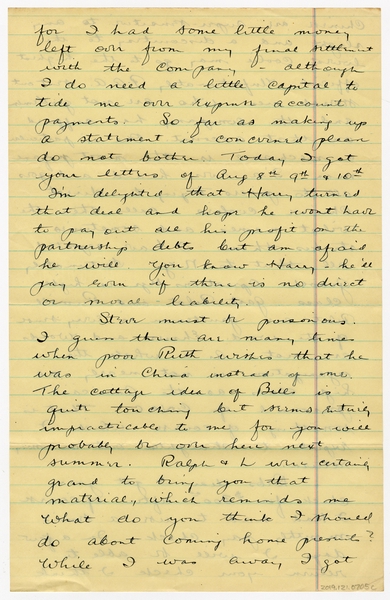 for I had some little money
left over from my final settlement
with the company - although
I do need a little capital to
tide me over expense account
payments. So far as making up
a statement is concerned please
do not bother. Today I got
your letters of Aug 8th 9th & 10th
I'm delighted that Harry turned
that deal and hope he wont have
to pay out all his profit on the
partnership debts but am afraid
he will. You know Harry - he'll
pay even if there is no direct
or moral liability.
Steve must be poisonous.
I guess there are many times
when poor Ruth wishes that he
was in China instead of me.
The cottage idea of Bill's is
quite touching but seems entirely
impracticable to me for you will
probably be over here next
summer. Ralph & L were certainly
grand to bring you that
material, which reminds me
What do you think I should
do about coming home presents?
While I was away I got
2019.121.0705c